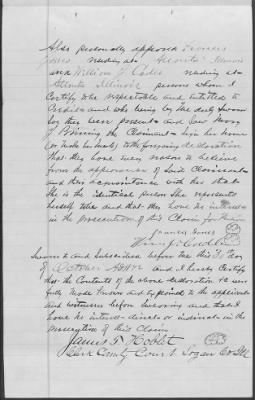 Also personally appeared Francis
Jones residing at Atlanta Illinois
and William J. residing at
Atlanta Illinois persons whom I
Certify to be respectable and entitled to
Credit and who being by me duly sworn
Say they were present and saw Nancy
the Claimant sign her name
(or make her mark) to the foregoing declaration
that they have every reason to believe
from the appearance of said Claimant
and their acquaintance with her that
She is the identical person she represents
herself to be and that they have no interest
in the prosecution of this Claim for Pension
Francis Jones
Wm. J.
Sworn to and Subscribed before me this 31 day
of October and I hereby Certify
that the Contents of the above declaration &c were
fully made Known and explained to the applicant
and witnesses before swearing and that I
have no interest direct or indirect in the
prosecution of this Claim
James T. Hoblit
Clerk County Court Logan Co Ill